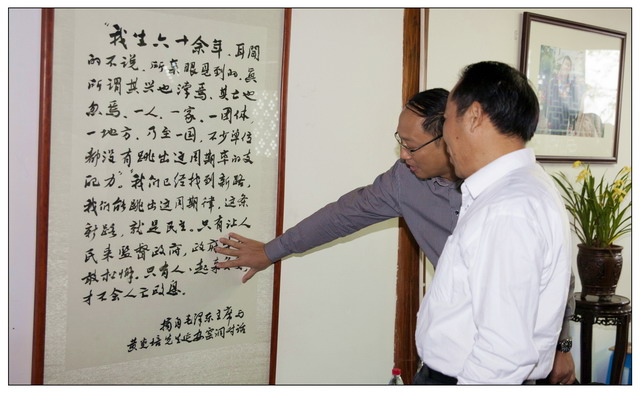 "我生六十余年，耳闻
的不说，所亲眼见到的，真
所谓其兴也浡焉，其亡也
忽焉，一人，一家，一团体，
一地方，乃至一国，不少单位
都没有跳出这周期率的支
配力"。"我们已经找到新路，
我们能跳出这周期律，这条
新路，就是民主。只有让人
民来监督政府，政府
敢松懈。只有人人起来
才不会人亡政息。
摘自毛泽东主席与
黄炎培先生延安窑洞对话